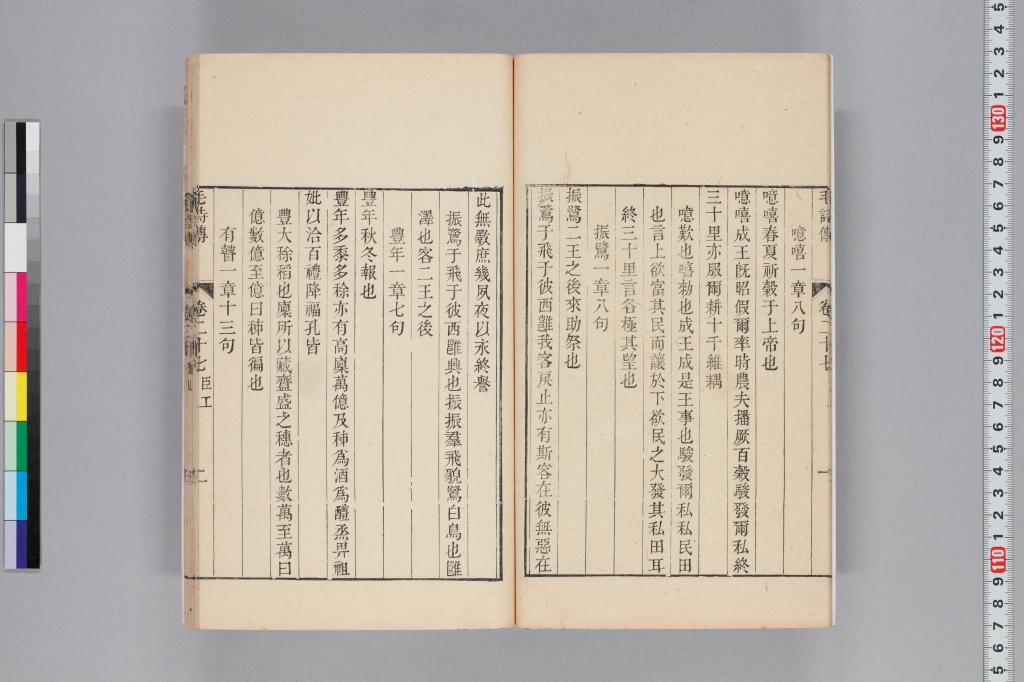 噫嘻一章八句
噫嘻春夏祈穀于上帝也
噫嘻成王旣昭假爾率時農夫播厥百穀駿發爾私終
三十里亦服爾耕十千維耦
噫歎也嘻勑也成王成是王事也駿發爾私私民田
也言上欲富其民而讓於下欲民之大發其私田耳
終三十里言各極其望也
振鷺一章八句
振鷺二王之後來助祭也
振鷺于飛于彼西雝我客戾止亦有斯容在彼無惡在
此無斁庶幾夙夜以永終譽
振鷺于飛于彼西雝興也振振羣飛貌鷺白鳥也雝
澤也客二王之後
豐年一章七句
豐年秋冬報也
豐年多黍多稌亦有高廩萬億及秭爲酒爲醴烝畀祖
妣以洽百禮降福孔皆
豐大稌稻也廩所以藏齍盛之穗者也數萬至萬曰
億數億至億曰秭皆徧也
有瞽一章十三句
毛詩傳 卷二十七 臣工 二